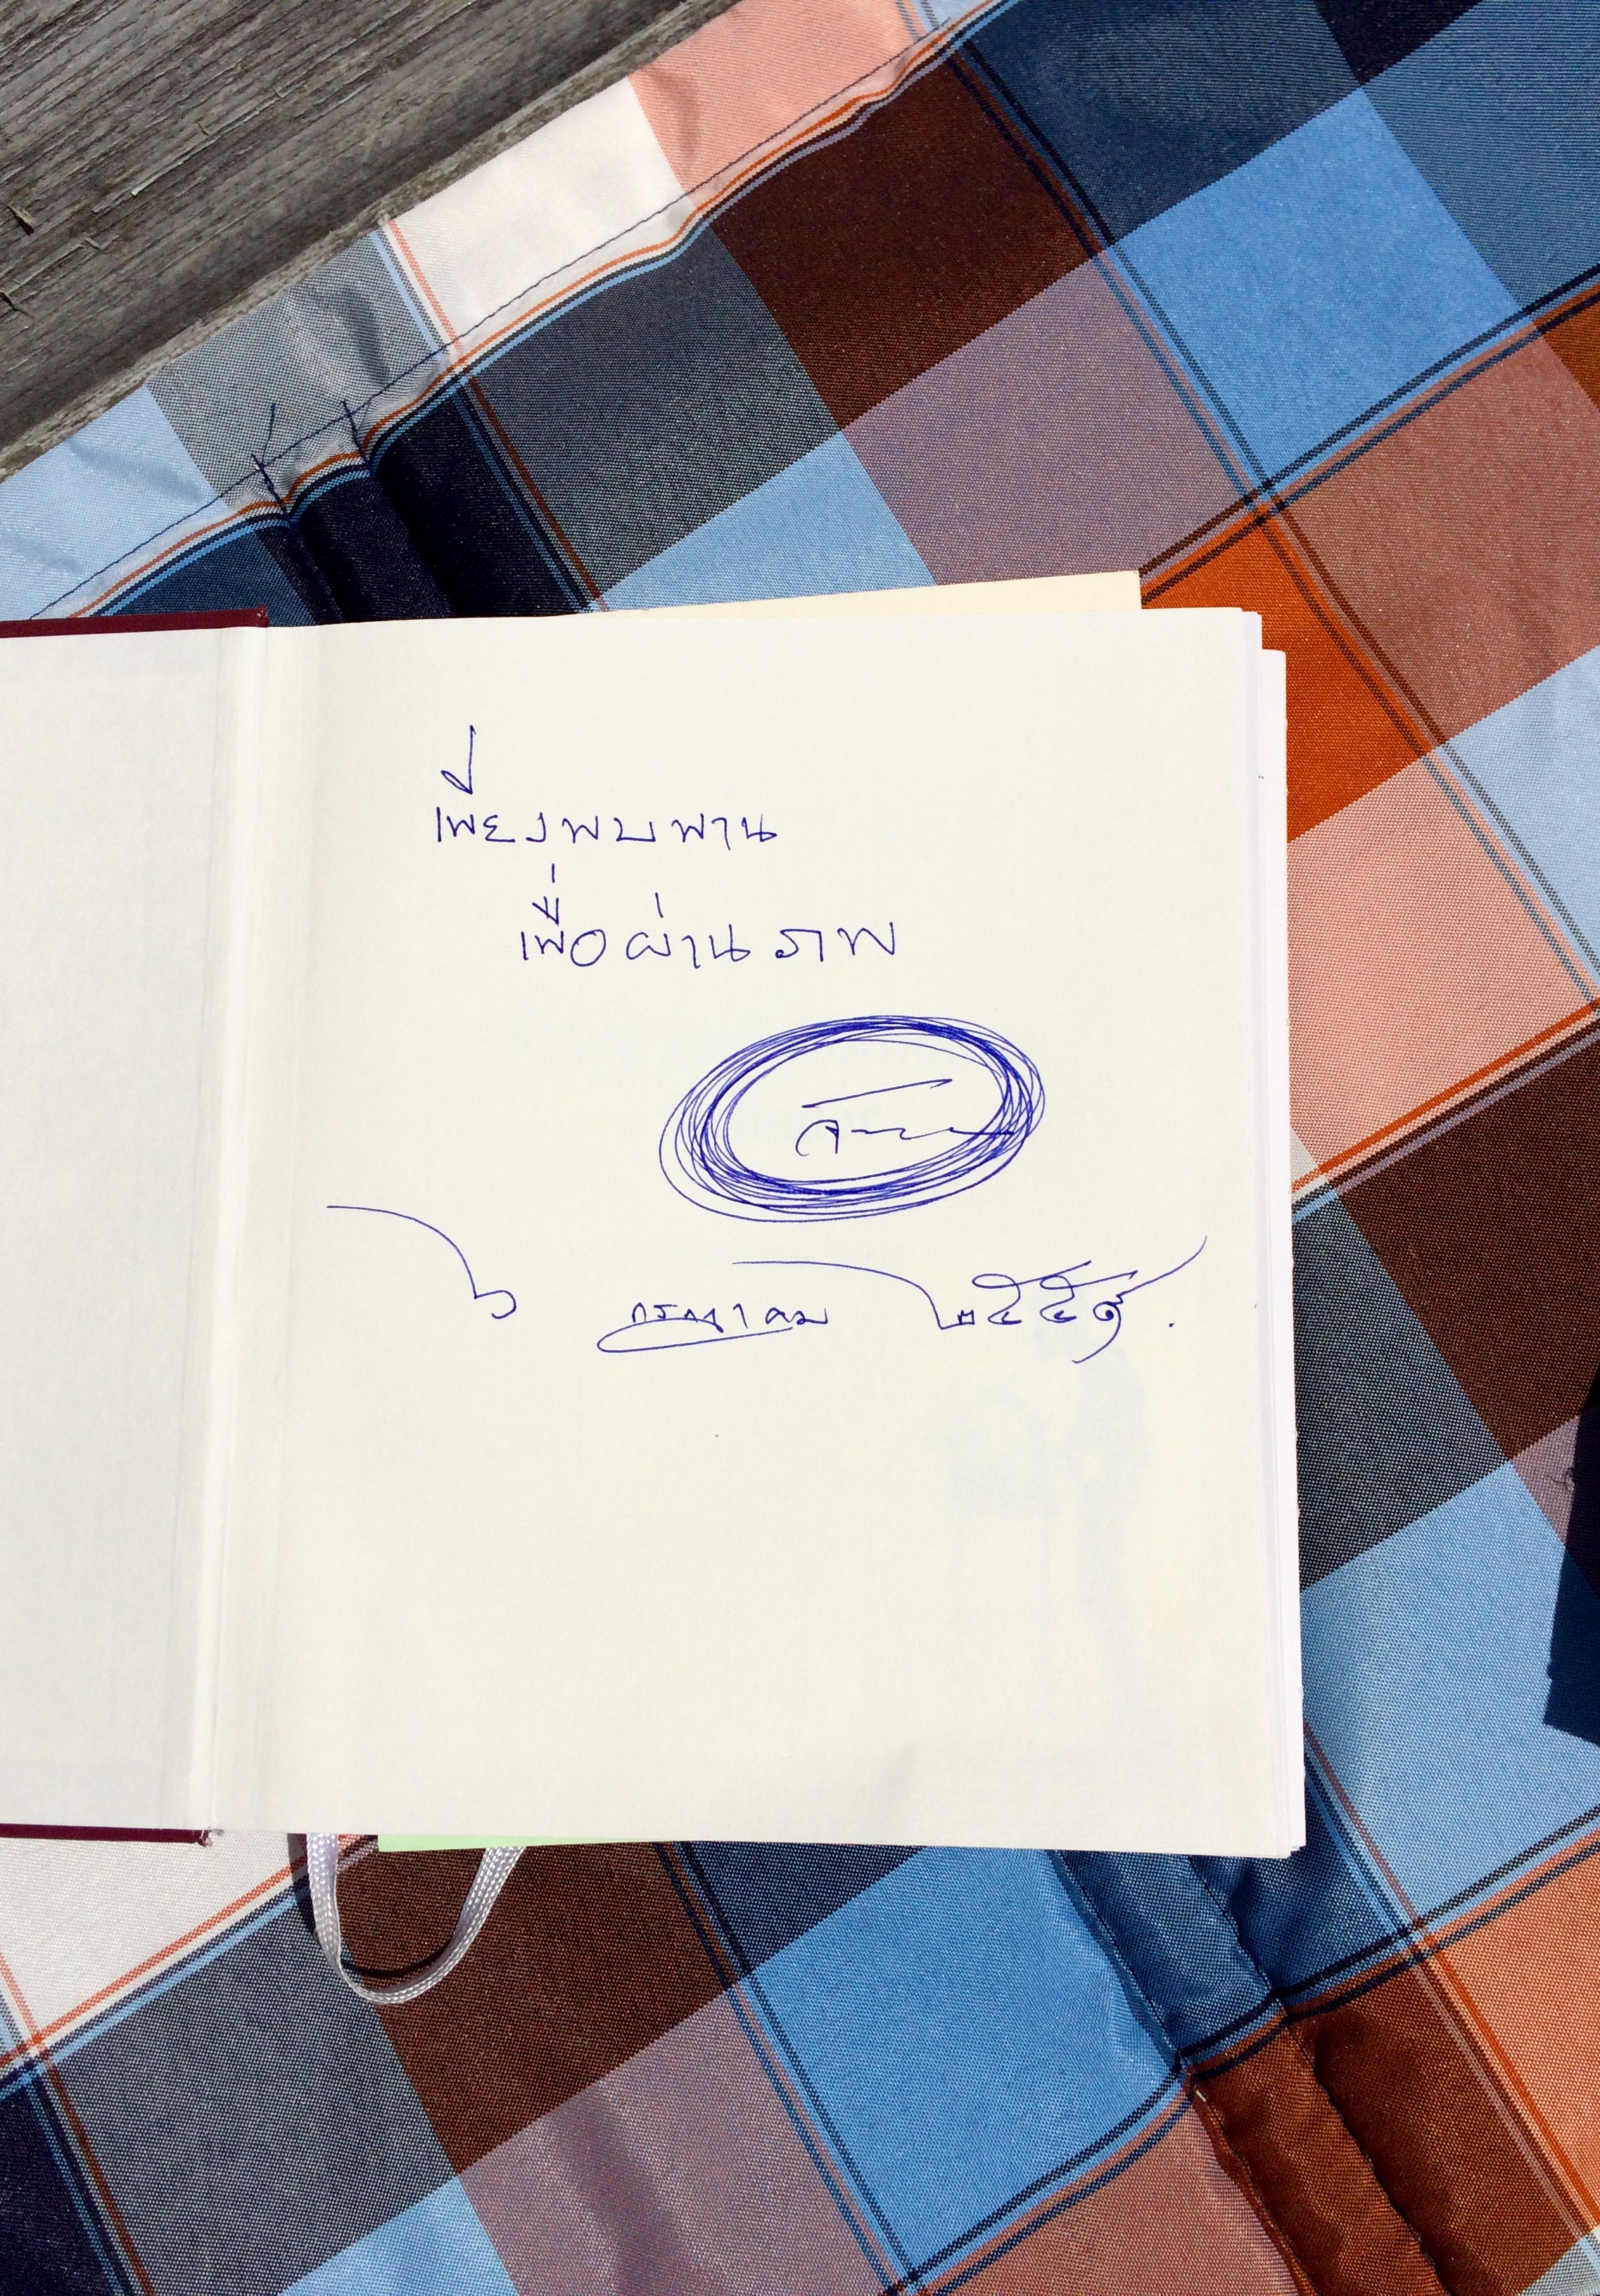 เพียงพบพาน
เพื่อผ่านภพ
๖ กรกฎาคม ๒๕๕๙